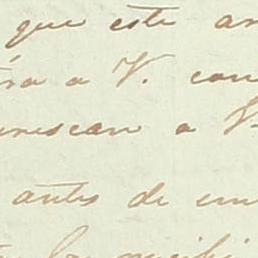 que este an
ra a V. con
rescan a V.
antes de em